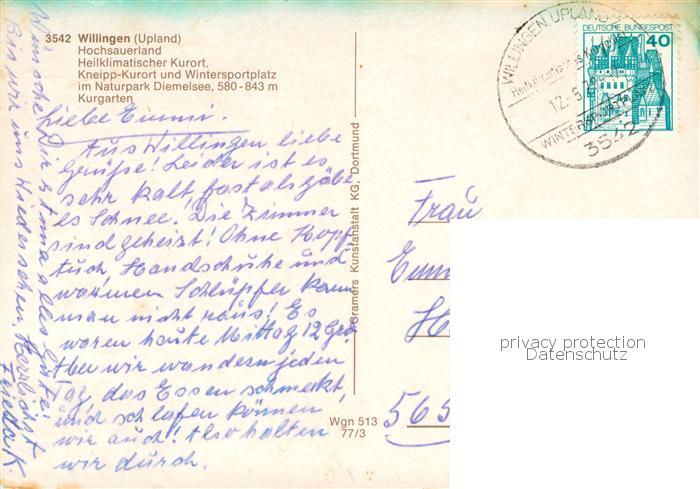 3542 Willingen (Upland)
Hochsauerland
Heilklimatischer Kurort,
Kneipp-Kurort und Wintersportplatz
im Naturpark Diemelsee, 580-843 m
Kurgarten
Liebe Emmi.
Aus Willingen liebe
Grüße! Leider ist es
sehr kalt, fast als gäbe
es Schnee. Die Zimmer
sind geheizt! Ohne Kopf-
tuch, Handschuhe und
warmen Schlüpfer kann
man nicht raus! Es
waren heute Mittag 12 Grd.
Aber wir wandern jeden
Tag, das Essen schmeckt,
und schlafen können
wir auch! Also halten
wir durch.
Wünsche Dir Emma alles Gute!
Bis wir uns Wiedersehen. Herzlichst
Frieda K.
Cramers Kunstanstalt KG, Dortmund
Wgn 513
77/3
WILLINGEN, UPLAND
12.-5.
WINTERSPORTPLATZ
3542
DEUTSCHE BUNDESPOST
40
Frau
565
privacy protection
Datenschutz